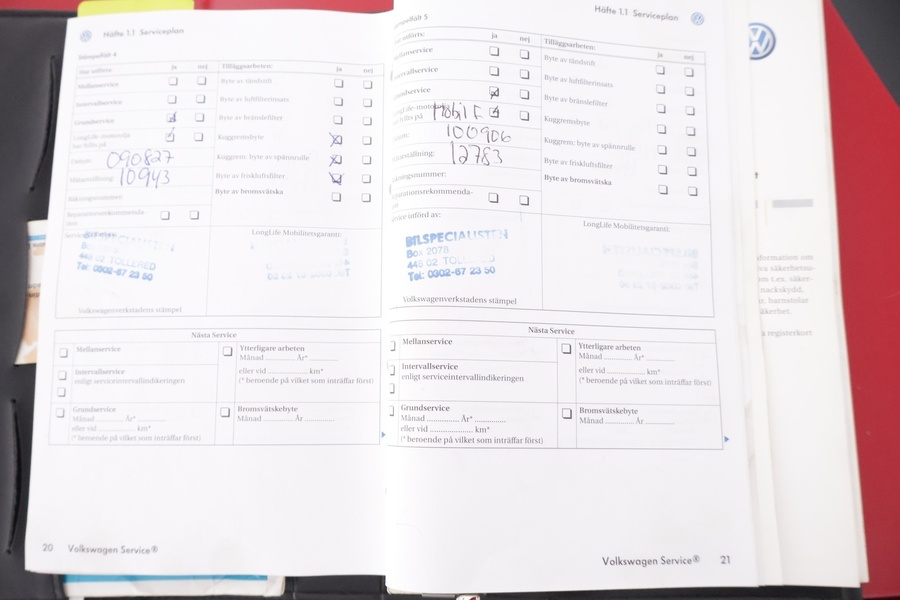 Häfte 1.1 Serviceplan
Stämpelfält 4
ja nej
Mellanservice
Intervallservice
Grundservice
LongLife-motorolja
har fyllts på
Datum: 090827
Mätarställning: 10943
Reparationsrekommenda-
tion
Tilläggsarbeten: ja nej
Byte av tändstift
Byte av luftfilterinsats
Byte av bränslefilter
Kuggremsbyte
Kuggrem: byte av spännrulle
Byte av friskluftsfilter
Byte av bromsvätska
BILSPECIALISTEN
448 02 TOLLERED
Tel: 0302-67 23 50
Volkswagenverkstadens stämpel
LongLife Mobilitetsgaranti:
Nästa Service
Mellanservice
Intervallservice
enligt serviceintervallindikeringen
Grundservice
Månad År*
eller vid km*
(* beroende på vilket som inträffar först)
Ytterligare arbeten
Månad År*
eller vid km*
(* beroende på vilket som inträffar först)
Bromsvätskebyte
Månad År
20 Volkswagen Service®
Häfte 1.1 Serviceplan
Stämpelfält 5
ja nej
Mellanservice
Intervallservice
Grundservice
LongLife-motorolja
har fyllts på Mobil F
100906
12783
Reparationsrekommenda-
Service utförd av:
BILSPECIALISTEN
Box 2078
448 02 TOLLERED
Tel: 0302-67 23 50
Volkswagenverkstadens stämpel
Tilläggsarbeten: ja nej
Byte av tändstift
Byte av luftfilterinsats
Byte av bränslefilter
Kuggremsbyte
Kuggrem: byte av spännrulle
Byte av friskluftsfilter
Byte av bromsvätska
LongLife Mobilitetsgaranti:
Nästa Service
Mellanservice
Intervallservice
enligt serviceintervallindikeringen
Grundservice
Månad År*
eller vid km*
(* beroende på vilket som inträffar först)
Ytterligare arbeten
Månad År*
eller vid km*
(* beroende på vilket som inträffar först)
Bromsvätskebyte
Månad År
Volkswagen Service® 21